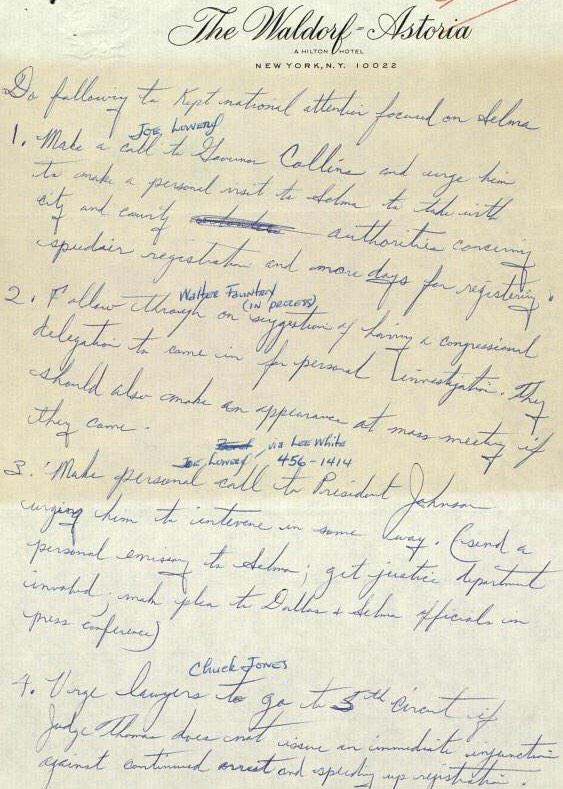 The Waldorf=Astoria
A HILTON HOTEL
NEW YORK, N.Y. 10022
Do following to Kept national attention focused on Selma
Joe Lowery
1. Make a call to Governor Collins and urge him
to make a personal visit to Selma to talk with
city and county authorities concerning
speedier registration and more days for registering.
Walter Fauntroy
(IN PROCESS)
2. Follow through on suggestion of having a congressional
delegation to come in for personal investigation. They
should also make an appearance at mass meeting if
they came.
Joe Lowery, via Lee White
456-1414
3. Make personal call to President Johnson
urging him to intervene in some way. (send a
personal emissary to Selma; get justice department
involved; make plea to Dallas & Selma officials in
press conference)
Chuck Jones
4. Urge lawyers to go to 5th circuit if
Judge Thomas does not issue an immediate injunction
against continued arrest and speeding up registration.